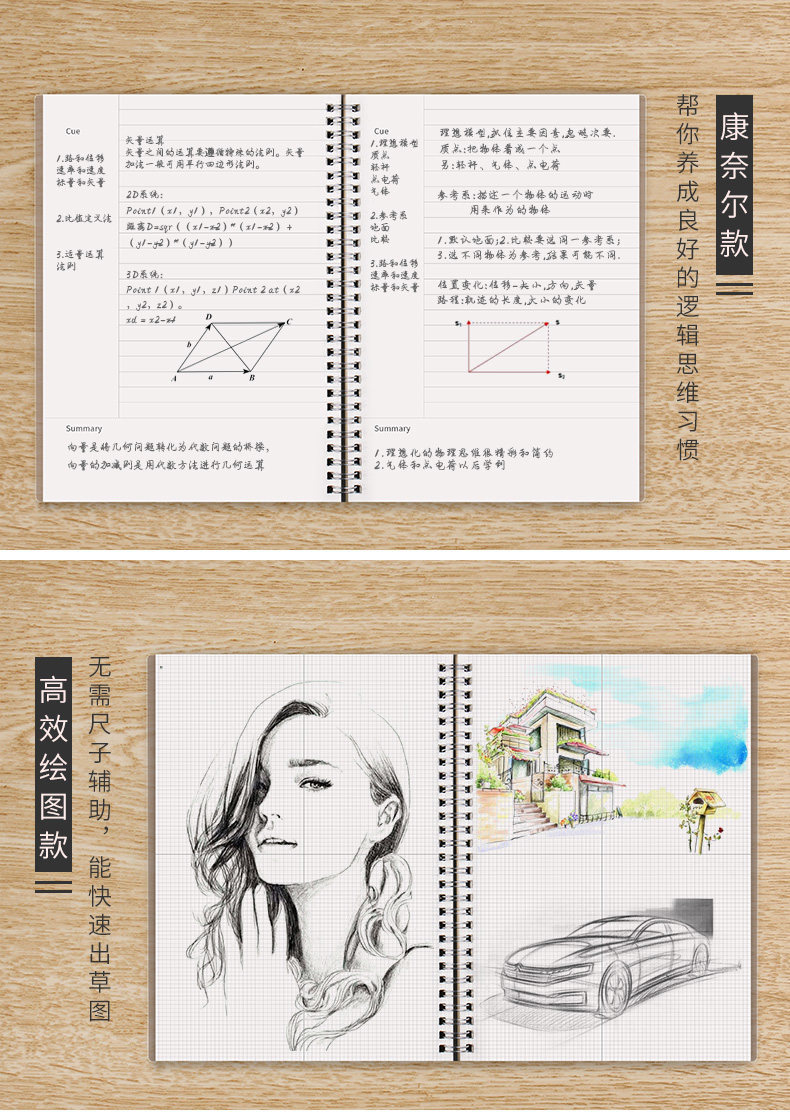 康奈尔款
帮你养成良好的逻辑思维习惯
Cue
1.路和位移
速率和速度
标量和矢量
2.比值定义法
3.运量运算
法则
矢量运算
矢量之间的运算要遵循特殊的法则。矢量
加法一般可用平行四边形法则。
2D系统:
Point1 (x1, y1), Point2 (x2, y2)
距离D=sqr ( (x1-x2)*(x1-x2) +
(y1-y2)*(y1-y2) )
3D系统:
Point 1 (x1, y1, z1) Point 2 at (x2
, y2, z2) 。
xd = x2-x1
D
C
b
A
a
B
Summary
向量是将几何问题转化为代数问题的桥梁,
向量的加减则是用代数方法进行几何运算
Cue
1.理想模型
质点
轻杆
点电荷
气体
2.参考系
地面
比较
3.路和位移
速率和速度
标量和矢量
理想模型,抓住主要因素,忽略次要.
质点:把物体看成一个点
另:轻杆、气体、点电荷
参考系:描述一个物体的运动时
用来作为的物体
1.默认地面;2.比较要选同一参考系;
3.选不同物体为参考,结果可能不同.
位置变化:位移-大小,方向,矢量
路程:轨迹的长度,大小的变化
S1
S
S2
Summary
1.理想化的物理思维很精彩和简约
2.气体和点电荷以后学到
高效绘图款
无需尺子辅助,能快速出草图